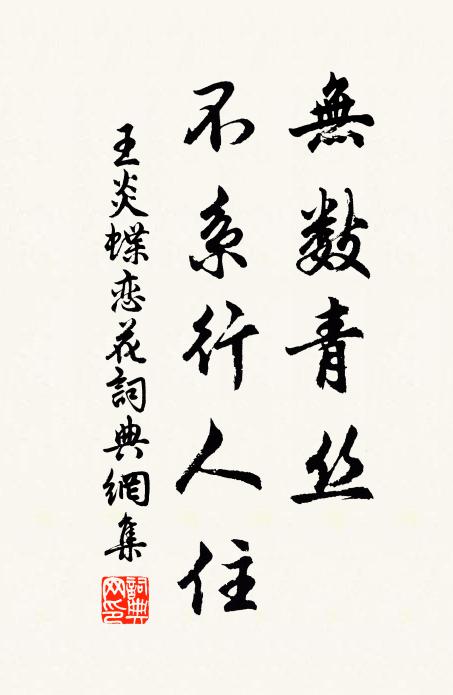 無數青丝
不系行人住
王炎蝶恋花詞典網集
詞典网印